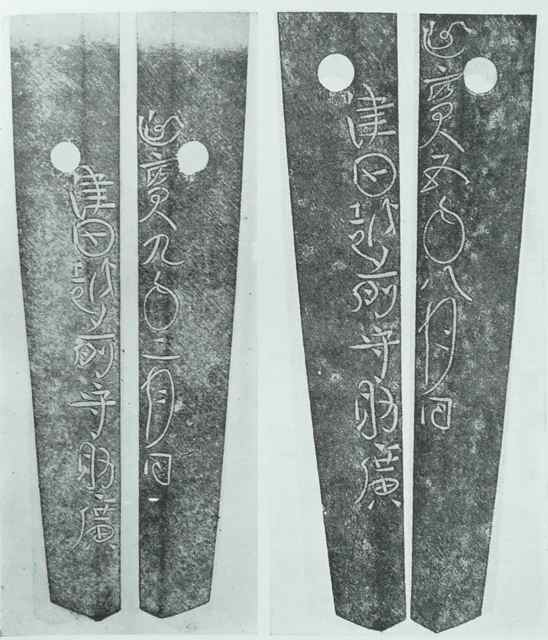 津田越前守助廣
延寳九年二月日
津田越前守助廣
延寳五年八月日